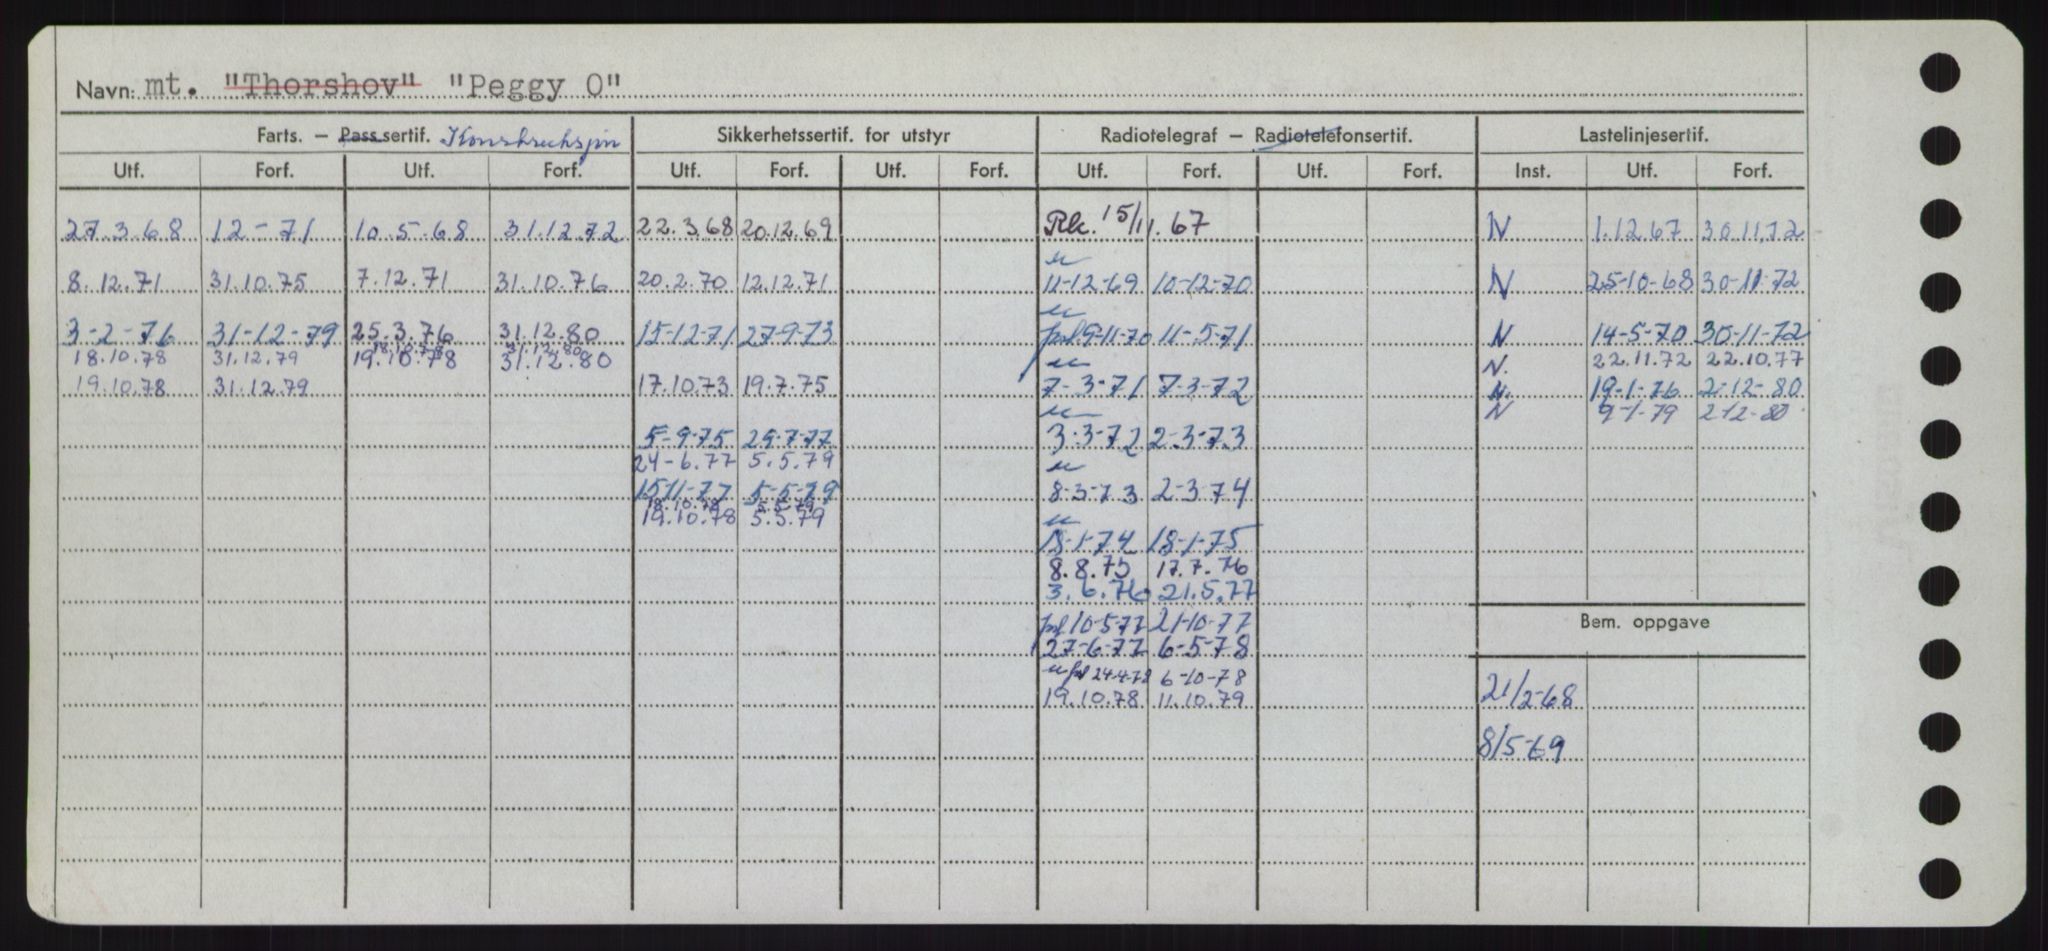 Navn: mt. "Thorshov" "Peggy O"
Farts. — Passsertif. Konstruksjon Sikkerhetssertif. for utstyr Radiotelegraf — Radiotelefonsertif. Lastelinjesertif.
Utf. Forf. Utf. Forf. Utf. Forf. Utf. Forf. Utf. Forf. Utf. Forf. Inst. Utf. Forf.
27.3.68 12-71 10.5.68 31.12.72 22.3.68 20.12.69 Rk. 15/11.67 N 1.12.67 30.11.72
8.12.71 31.10.75 7.12.71 31.10.76 20.2.70 12.12.71 11-12-69 10-12-70 N 25-10-68 30-11-72
3-2-76 31-12-79 25.3.76 31.12.80 15-12-71 27-9-73 9-11-70 11-5-71 N 14-5-70 30-11-72
18.10.78 31.12.80
18.10.78 31.12.79 19.10.78 31.12.80 N. 22.11.72 22.10.77
19.10.78 31.12.79 17.10.73 19.7.75 7-3-71 7-3-72 N. 19-1-76 2-12-80
N 9-1-79 2-12-80
5-9-75 25-7-77 3-3-72 2-3-73
24-6.77 5.5.79
15-11-77 5-5-79 8-3-73 2-3-74
18.10.78 5.5.79
19.10.78 5.5.79
18-1-74 18-1-75
8.8.75 17.7.76
3.6.76 21.5.77
10-5-77 21-10-77 Bem. oppgave
27-6-77 6-5-78
24-4-78 6-10-78
19.10.78 11.10.79 21/2-68
8/5-69